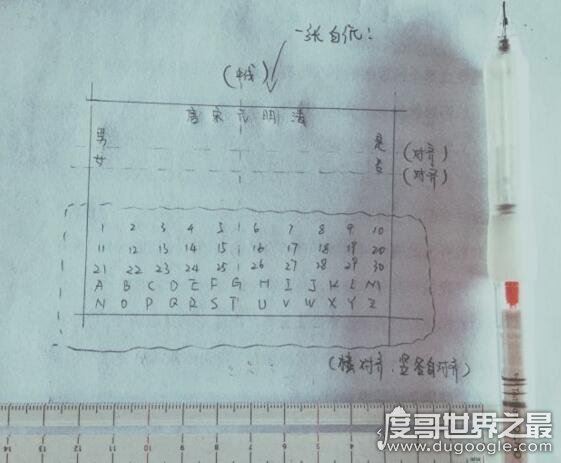 一张白纸!
(中线)
唐 宋 元 明 清
男 是 (对齐)
女 否 (对齐)
1 2 3 4 5 6 7 8 9 10
11 12 13 14 15 16 17 18 19 20
21 22 23 24 25 26 27 28 29 30
A B C D E F G H I J K L M
N O P Q R S T U V W X Y Z
(横对齐,竖各自对齐)
度哥世界之最
www.dugoogle.com